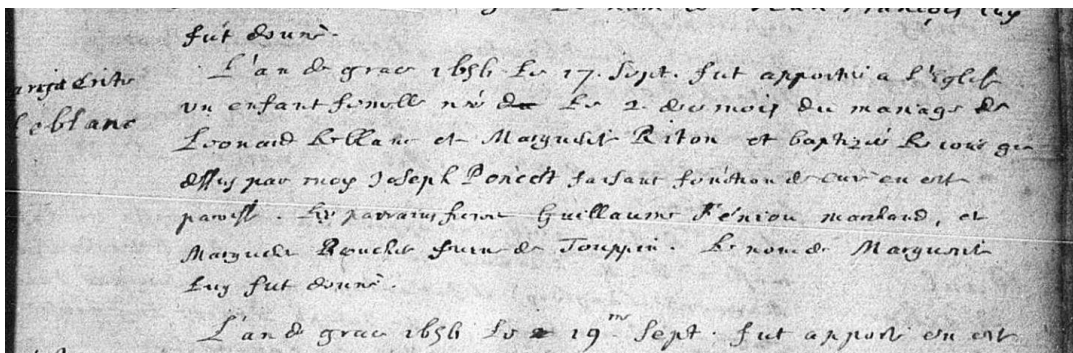 fut donné.
L'an de grace 1656 Le 17. Sept. fut apportée a l'Eglise
Margueritte
un enfant femelle née Le 2 du mois du mariage de
leblanc
Leonard Leblanc et Marguerite Riton et baptizée Le iour
dessus par moy Joseph Poncet faisant fonction de curé en cet
paroisse. Les parrains furent Guillaume Féniou marchand, et
Marguerite Boucher femme de Touppin. Le nom de Marguerite
Luy fut donné.
L'an de grace 1656 Le 19 me Sept. fut apporté en cet